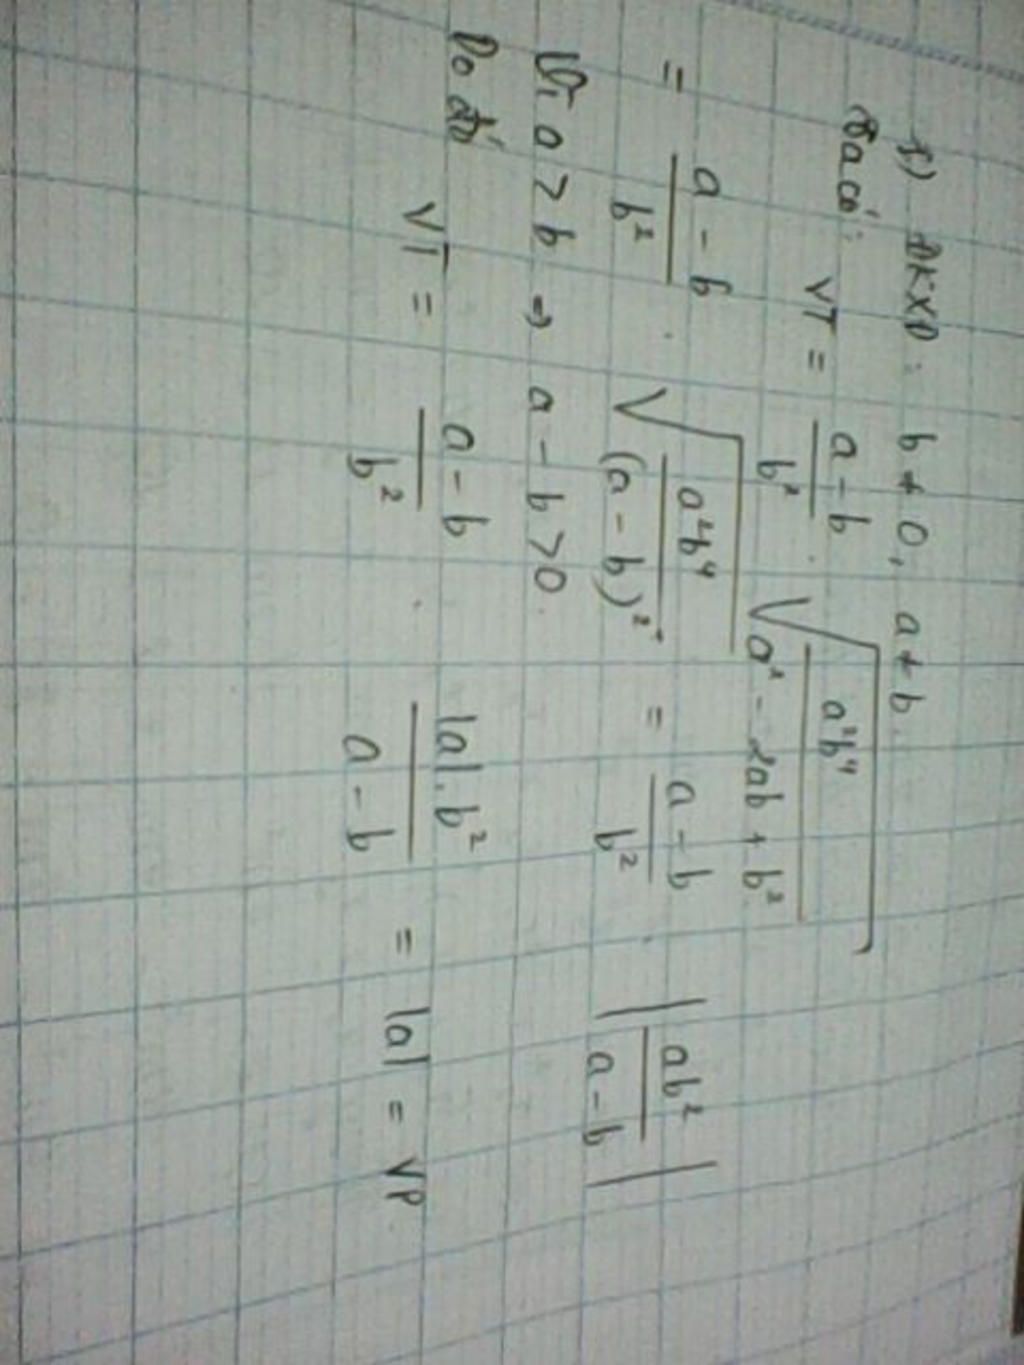 1) ĐKXĐ: b ≠ 0, a ≠ b.
Ta có: VT = \frac{a-b}{b^2} . \sqrt{\frac{a^2b^4}{a^2-2ab+b^2}}
= \frac{a-b}{b^2} . \sqrt{\frac{a^2b^4}{(a-b)^2}} = \frac{a-b}{b^2} . |\frac{ab^2}{a-b}|
Vì a > b ⇒ a - b > 0.
Do đó
VT = \frac{a-b}{b^2} . \frac{|a|.b^2}{a-b} = |a| = VP